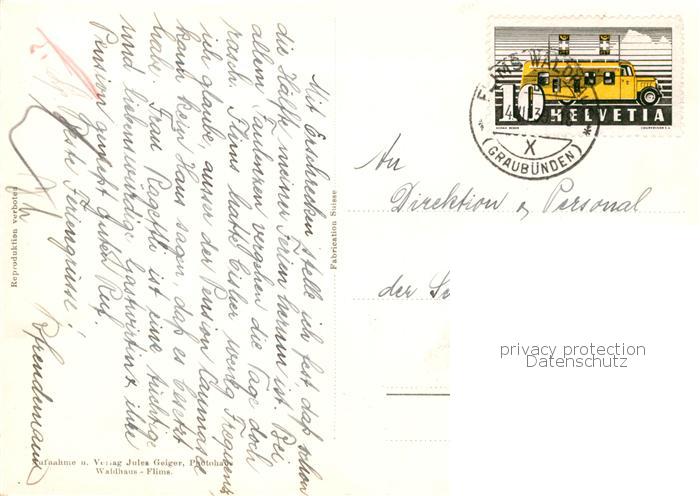 Mit Erschrecken stelle ich fest daß schon
die Hälfte meiner Ferien herum ist. Bei
allem Faulenzen vergehen die Tage doch
rasch. Flims hatte bisher wenig Frequenz
ich glaube, ausser der Pension
kann kein Haus sagen, daß es besetzt
habe. Frau ist eine tüchtige
und liebenswürdige Gastwirtin & ihre
Pension genießt guten Ruf.
Beste Feriengrüsse!
Reproduktion verboten
Fabrication Suisse
Aufnahme u. Verlag Jules Geiger, Photohaus
Waldhaus - Flims.
FLIMS WALDHAUS
X
(GRAUBÜNDEN)
10 HELVETIA
COURVOISIER S.A.
An
Direktion & Personal
der
privacy protection
Datenschutz